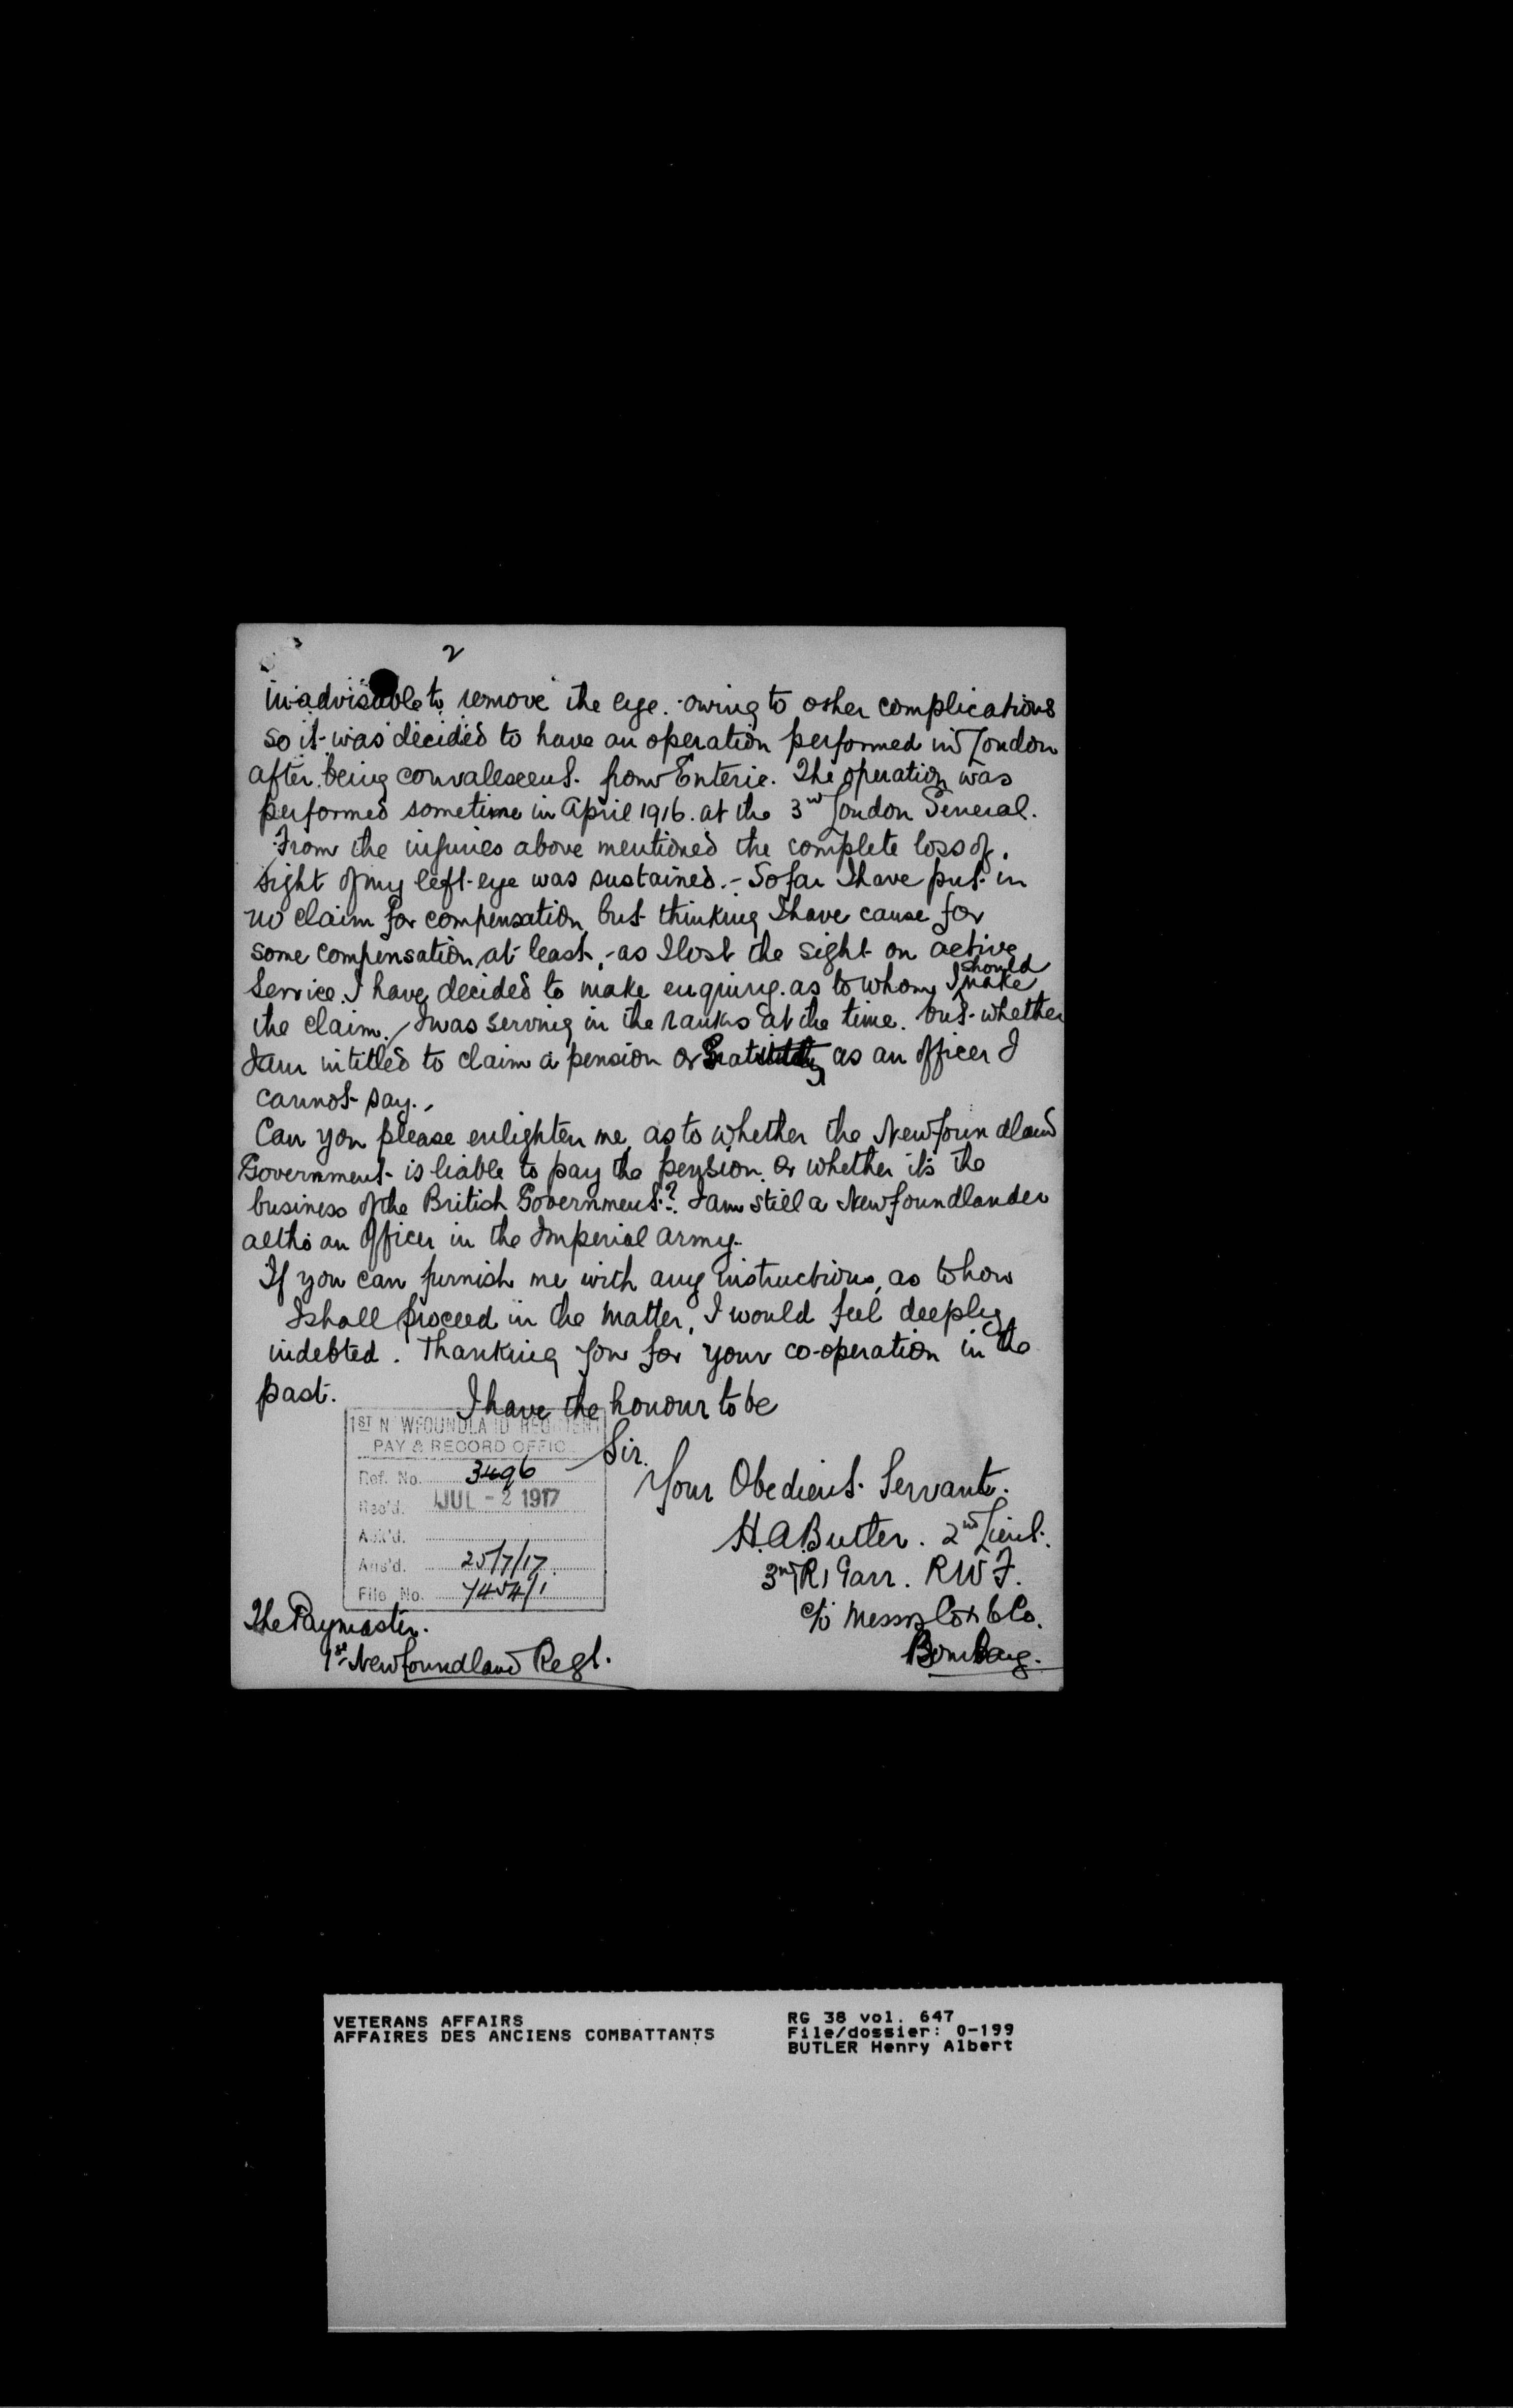 2
inadvisable to remove the eye. owing to other complications
so it was decided to have an operation performed in London
after being convalescent from Enteric. The operation was
performed sometime in April 1916. at the 3rd London General.
From the injuries above mentioned the complete loss of
sight of my left eye was sustained. - So far I have put in
no claim for compensation, but thinking I have cause for
some compensation, at least, - as I lost the sight on active
should
Service. I have decided to make enquiry. as to whom I make
the claim. I was serving in the ranks at the time. but whether
I am intitled to claim a pension or as an officer I
cannot say.
Can you please enlighten me, as to whether the Newfoundland
Government is liable to pay the pension. Or whether it's the
business of the British Government? I am still a Newfoundlander
altho an Officer in the Imperial Army.
If you can furnish me with any instructions, as to how
I shall proceed in the matter, I would feel deeply
indebted. Thanking you for your co-operation in the
past.
I have the honour to be
Sir.
Your Obedient Servant.
H.A. Butler. 2nd Lieut.
3rd (R) Garr. RWF.
c/o Messrs Cox & Co.
Bombay.
1ST N WFOUNDLA ND REGIMENT
PAY & RECORD OFFIC
Ref. No. 3496
Rec'd. JUL - 2 1917
Ack'd.
Ans'd. 25/7/17
File No. 7454/1
The Paymaster.
1st Newfoundland Regt.
VETERANS AFFAIRS
AFFAIRES DES ANCIENS COMBATTANTS
RG 38 vol. 647
File/dossier: 0-199
BUTLER Henry Albert